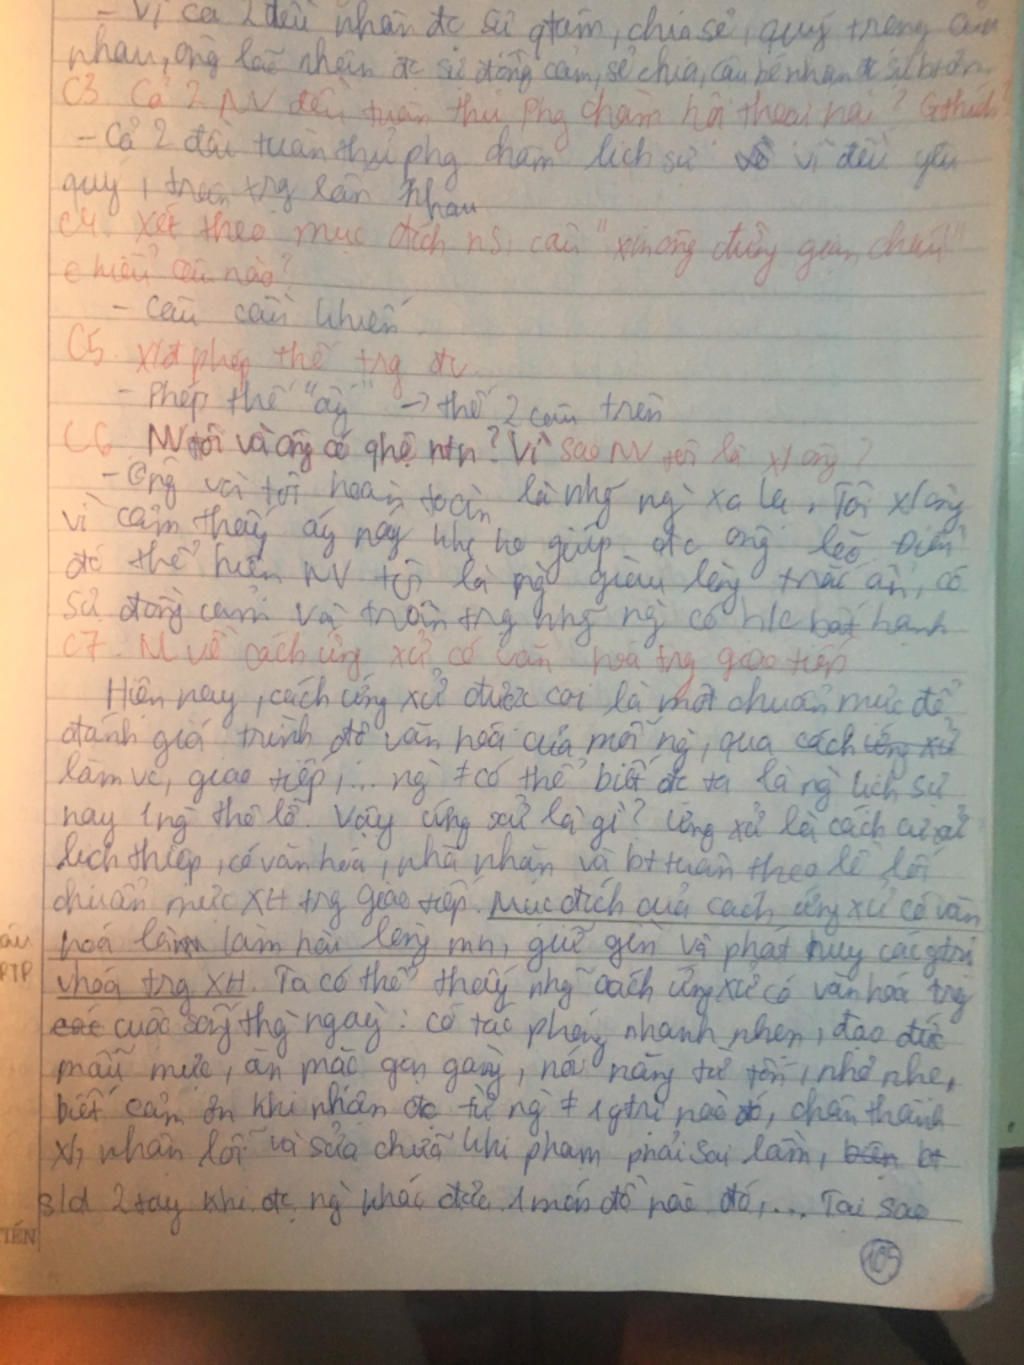 - Vì cả 2 đều nhận đc sự qtâm, chia sẻ, quý trọng của
nhau, ông lão nhận đc sự đồng cảm, sẻ chia, cậu bé nhận đc sự
C3. Cả 2 NV đều tuân thủ phg châm hội thoại nào? Gthích?
- Cả 2 đều tuân thủ phg châm lịch sự vì đều yêu
quý, trân trg lẫn nhau
C4. Xét theo mục đích nS, câu "xin ông đừng giận cháu!"
kiểu câu nào?
- Câu cầu khiến.
C5. Xđ phép thế trg đv
- Phép thế "ấy" → thế 2 câu trên
C6. NV tôi và ông có qhệ ntn? Vì sao NV tôi là xl ông?
- Ông và tôi hoàn toàn là nhg ng xa lạ, Tôi xl ông
vì cảm thấy áy náy khi ko giúp đc ông lão. Điều
đó thể hiện NV tôi là ng giàu lòng trắc ẩn, có
sự đồng cảm và trân trg nhg ng có h/c bất hạnh
C7. N về cách ứng xử có văn hoá trg giao tiếp
Hiện nay, cách ứng xử được coi là một chuẩn mực để
đánh giá trình độ văn hoá của mỗi ng, qua cách ứng xử
làm vc, giao tiếp,... ng ≠ có thể biết đc ta là ng lịch sự
hay 1 ng thô lỗ. Vậy ứng xử là gì? Ứng xử là cách cư xử
lịch thiệp, có văn hoá, nhã nhặn và bt tuân theo lề lối
chuẩn mực XH trg giao tiếp. Mục đích của cách ứng xử có văn
hoá là làm hài lòng mn, giữ gìn và phát huy các gtrị
vhoá trg XH. Ta có thể thấy nhg cách ứng xử có văn hoá trg
các cuộc sống thg ngày: có tác phong nhanh nhẹn, đạo đức
mẫu mực, ăn mặc gọn gàng, nói năng từ tốn, nhỏ nhẹ,
biết cảm ơn khi nhận đc từ ng ≠ 1 gtrị nào đó, chân thành
xl, nhận lỗi và sửa chữa khi phạm phải sai lầm, biết bt
s/d 2 tay khi đc ng khác đưa 1 món đồ nào đó,... Tại sao
105